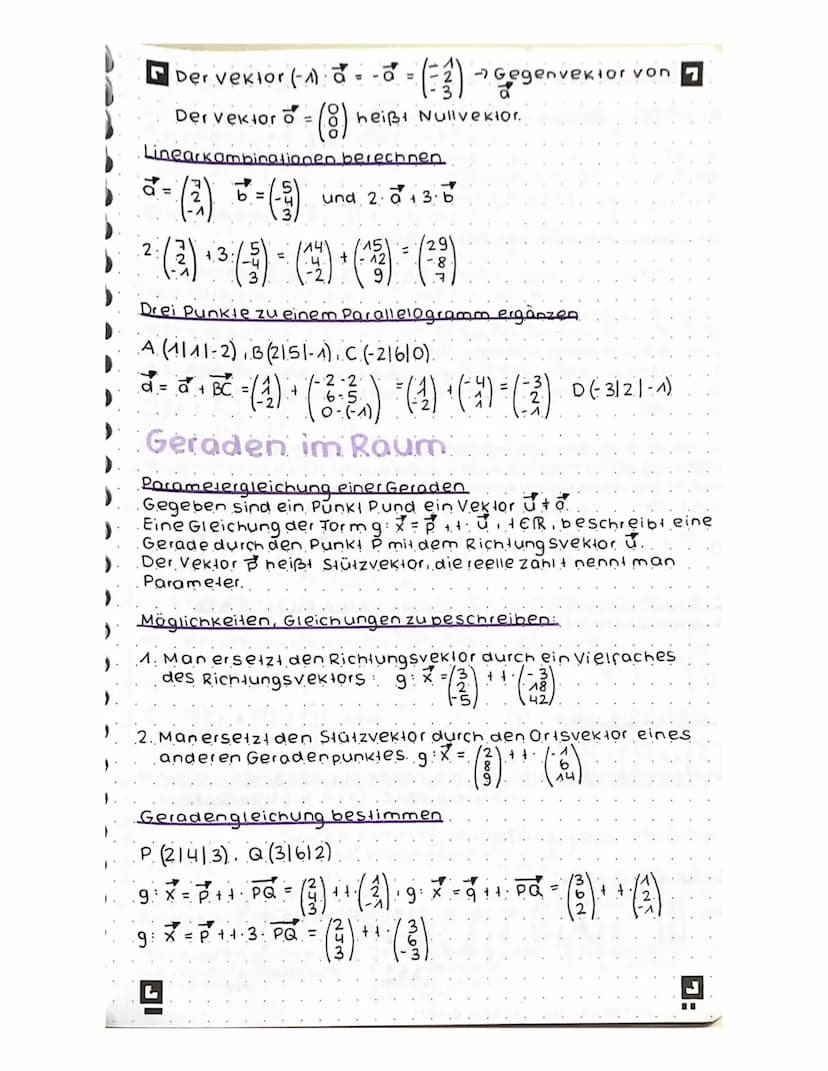 Der Vektor (-1)·a⃗ = -a⃗ = (-1 -2 -3) → Gegenvektor von a⃗
Der Vektor o⃗ = (0 0 0) heißt Nullvektor.
Linearkombinationen berechnen
a⃗ = (7 2 -1) b⃗ = (5 -4 3) und 2·a⃗ + 3·b⃗
2·(7 2 -1) + 3·(5 -4 3) = (14 4 -2) + (15 -12 9) = (29 -8 7)
Drei Punkte zu einem Parallelogramm ergänzen
A (1|1|-2), B(2|5|-1), C(-2|6|0)
d⃗ = a⃗ + BC⃗ = (1 1 -2) + (-2-2 6-5 0-(-1)) = (1 1 -2) + (-4 1 1) = (-3 2 -1) D(-3|2|-1)
Geraden im Raum
Parametergleichung einer Geraden
Gegeben sind ein Punkt P und ein Vektor u⃗ ≠ o⃗.
Eine Gleichung der Form g: x⃗ = p⃗ + t·u⃗, t∈ℝ, beschreibt eine
Gerade durch den Punkt P mit dem Richtungsvektor u⃗.
Der Vektor p⃗ heißt Stützvektor, die reelle Zahl t nennt man
Parameter.
Möglichkeiten, Gleichungen zu beschreiben:
1. Man ersetzt den Richtungsvektor durch ein Vielfaches
des Richtungsvektors: g: x⃗ = (3 2 -5) + t·(-3 18 42)
2. Man ersetzt den Stützvektor durch den Ortsvektor eines
anderen Geradenpunktes. g: x⃗ = (2 8 9) + t·(-1 6 14)
Geradengleichung bestimmen
P (2|4|3), Q (3|6|2)
g: x⃗ = p⃗ + t·PQ⃗ = (2 4 3) + t·(1 2 -1), g: x⃗ = q⃗ + t·PQ⃗ = (3 6 2) + t·(1 2 -1)
g: x⃗ = p⃗ + t·3·PQ⃗ = (2 4 3) + t·(3 6 -3)